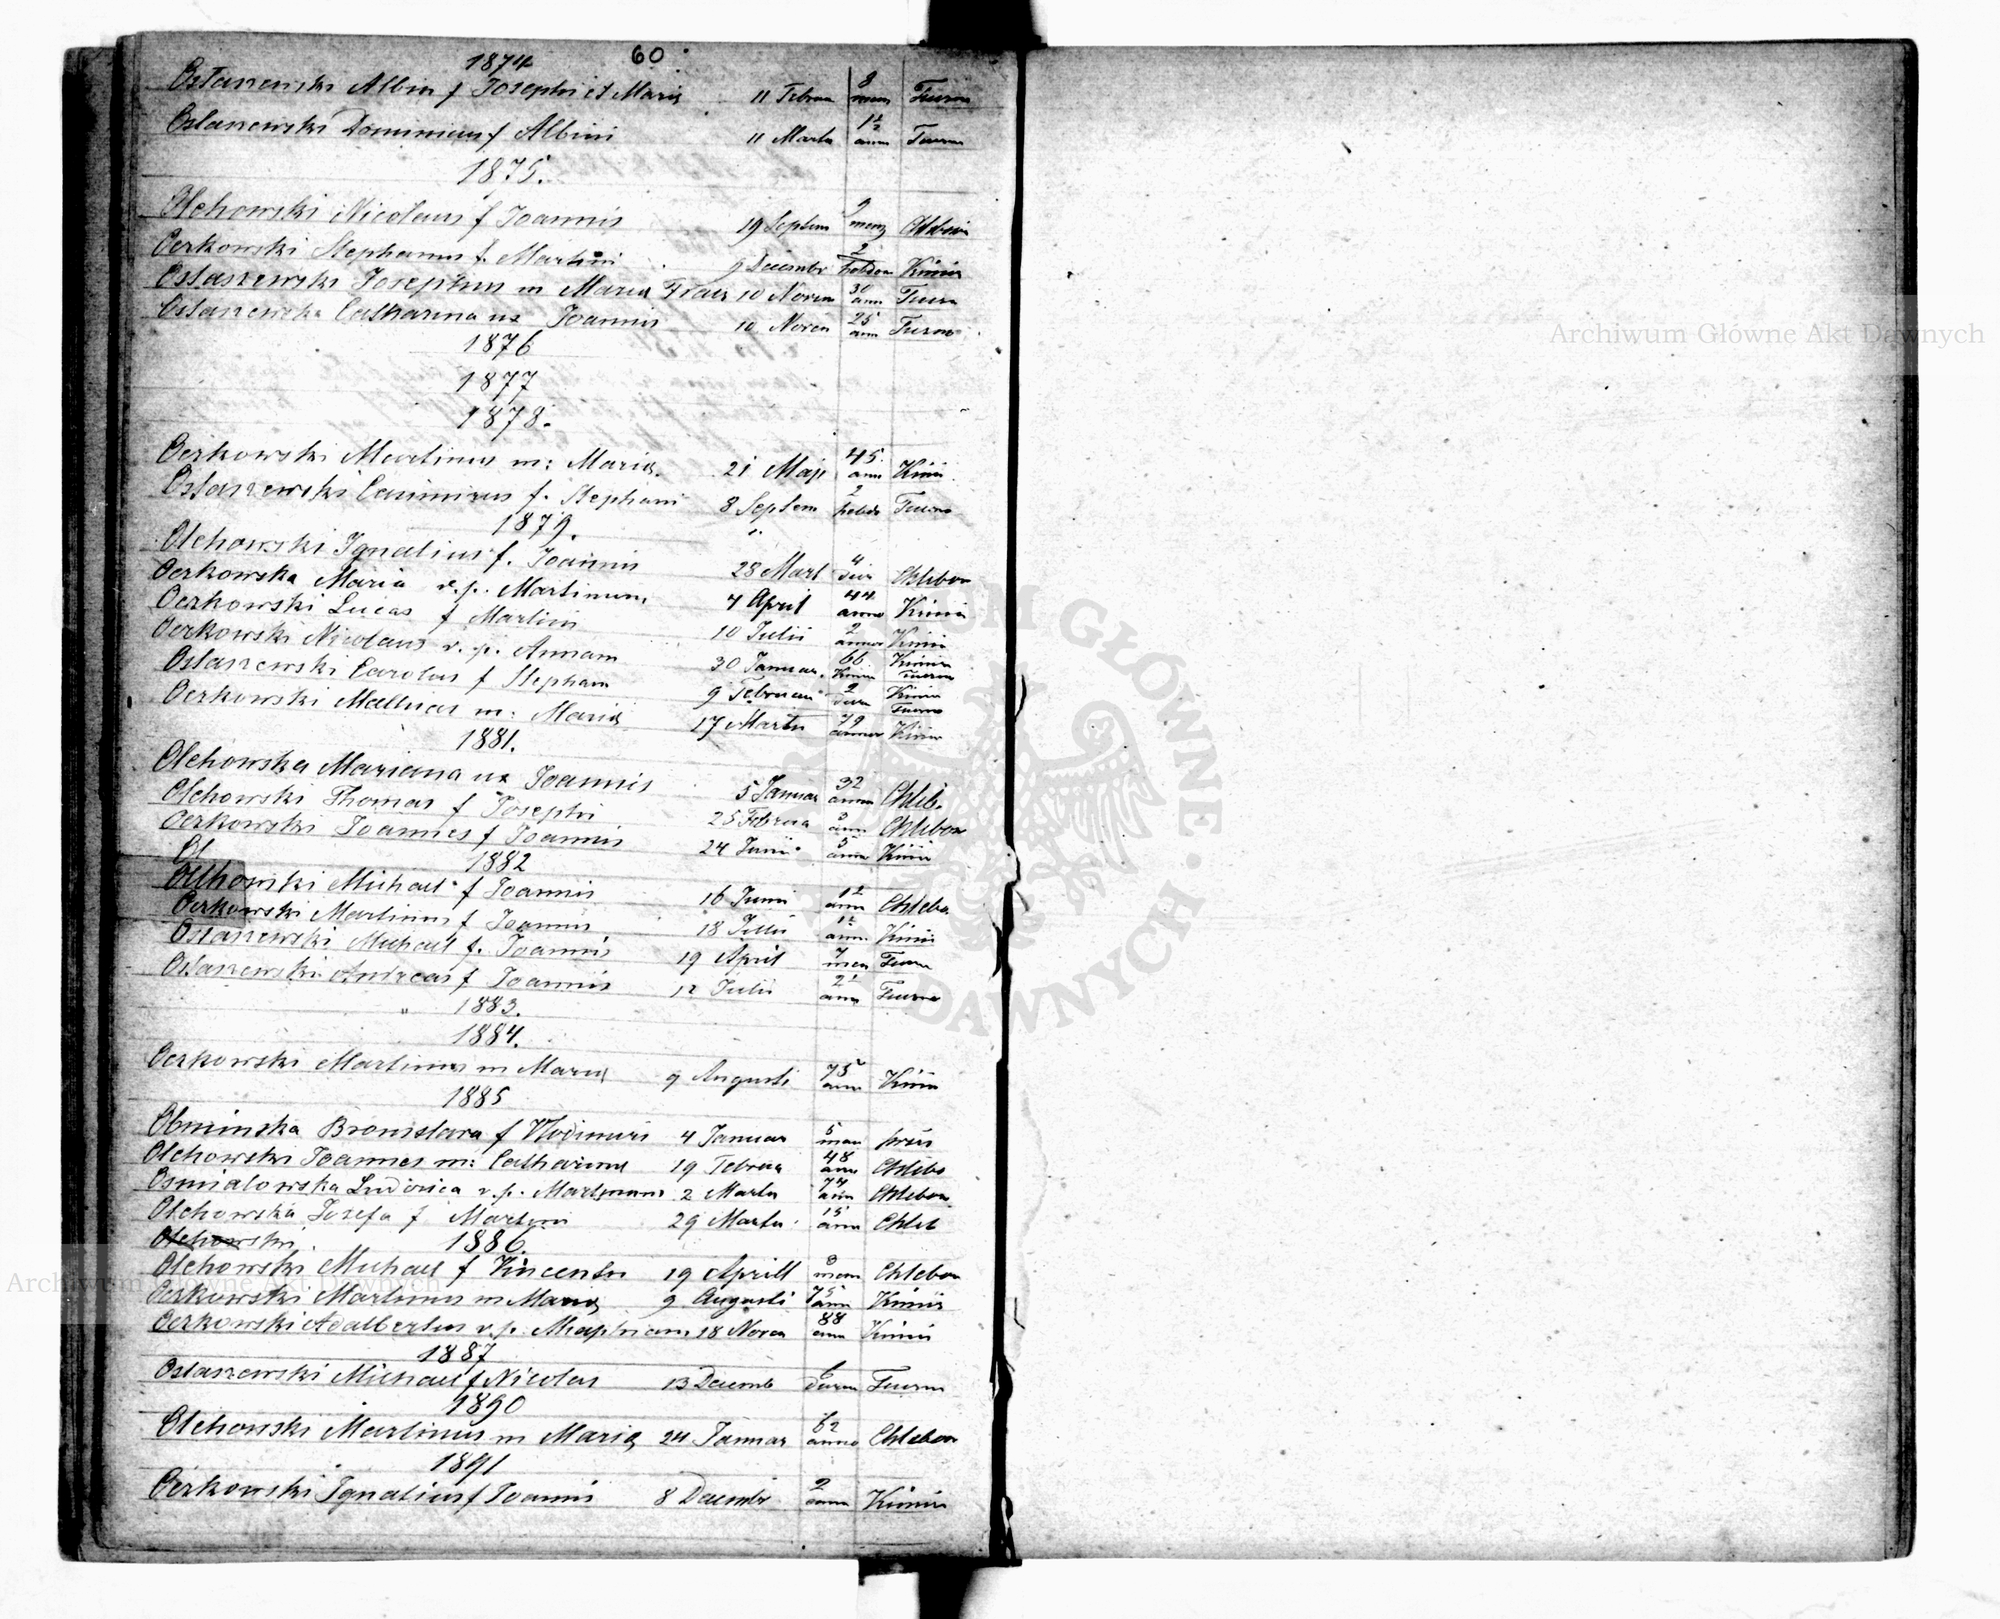 1874 60.
Ostaszewski Albin f Josephi et Maria 11 Februa 8 mens Turow
Ostaszewski Dominicus f Albini 11 Marti 1 1/2 ann Turow
1875.
Olchowski Nicolaus f Joannis 19 Septem menz Chlebow
Oczkowski Stephanus f. Martini 9 Decembr 2 hebdom Kinin
Ostaszewski Josephus m Maria 10 Novem 30 ann Turow
Ostaszewska Catharina ux Joannis 10 Novem 25 ann Turow
1876
1877
1878.
Oczkowski Martinus m: Maria. 21 Maji 45. ann Kinii
Ostaszewski Casimirus f. Stephani 8 Septem 2 hebdo Turow
1879.
Olchowski Ignatius f. Joannis 28 Mart 4 dier Chlebow
Oczkowska Maria v.p. Martinum 4 April 44 anno Kinin
Oczkowski Lucas f Martini 10 Julii 2 annor Kinii
Oczkowski Nicolaus v.p. Annam 30 Januar. 66 Kinin
Ostaszewski Carolus f Stephani 9 Februari 2 Turow
Oczkowski Mathias m: Maria 17 Martii 79 annor Kinin
1881.
Olchowska Mariana ux Joannis 5 Januar 32 annor Chleb.
Olchowski Thomas f Josephi 25 Februa 3 ann Chlebow
Oczkowski Joannes f Joannis 24 Junii 5 anno Kinii
Ol 1882
Olchowski Michael f Joannis 16 Junii 1 1/2 ann Chlebo
Oczkowski Martinus f Joannis 18 Julii 1 1/2 ann. Kinii
Ostaszewski Michael f. Joannis 19 April 7 men Turow
Ostaszewski Andreas f Joannis 12 Julii 2 ann Turow
" 1883.
1884.
Oczkowski Martinus m Maria 9 Augusti 75 ann Kinin
1885
Obminska Bronislava f Vlodimiri 4 Januar 5 men
Olchowski Joannes m: Catharina 19 Februa 48 ann Chlebo
Osmialowska Ludovica v.p. 2 Martii 74 ann Chlebow
Olchowska Josefa f Martini 29 Martii 15 ann Chleb
Olchowski. 1886.
Olchowski Michael f Vincenti 19 Aprill 8 mens Chlebow
Oczkowski Martinus m Maria 9 Augusti 75 ann Kinii
Oczkowski Adalbertus v.p. 18 Novem 88 ann Kinii
1887
Ostaszewski Michael f Nicolai 13 Decemb Turow
1890
Olchowski Martinus m Maria 24 Januar 62 anno Chlebow
1891
Oczkowski Ignatius f Joannis 8 Decembr 2 anno Kinin
Archiwum Główne Akt Dawnych
Archiwum Główne Akt Dawnych
ARCHIWUM GŁÓWNE AKT DAWNYCH